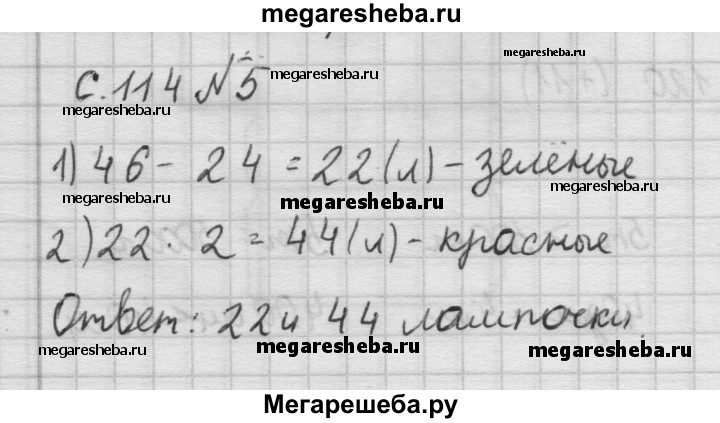 megaresheba.ru
megaresheba.ru
с. 114 №5
megaresheba.ru
megaresheba.ru
megaresheba.ru
1) 46 - 24 = 22 (л) - зелёные
megaresheba.ru
megaresheba.ru
megaresheba.ru
2) 22 · 2 = 44 (л) - красные
Ответ: 22 и 44 лампочки.
megaresheba.ru
megaresheba.ru
megaresheba.ru
Мегарешеба.ру